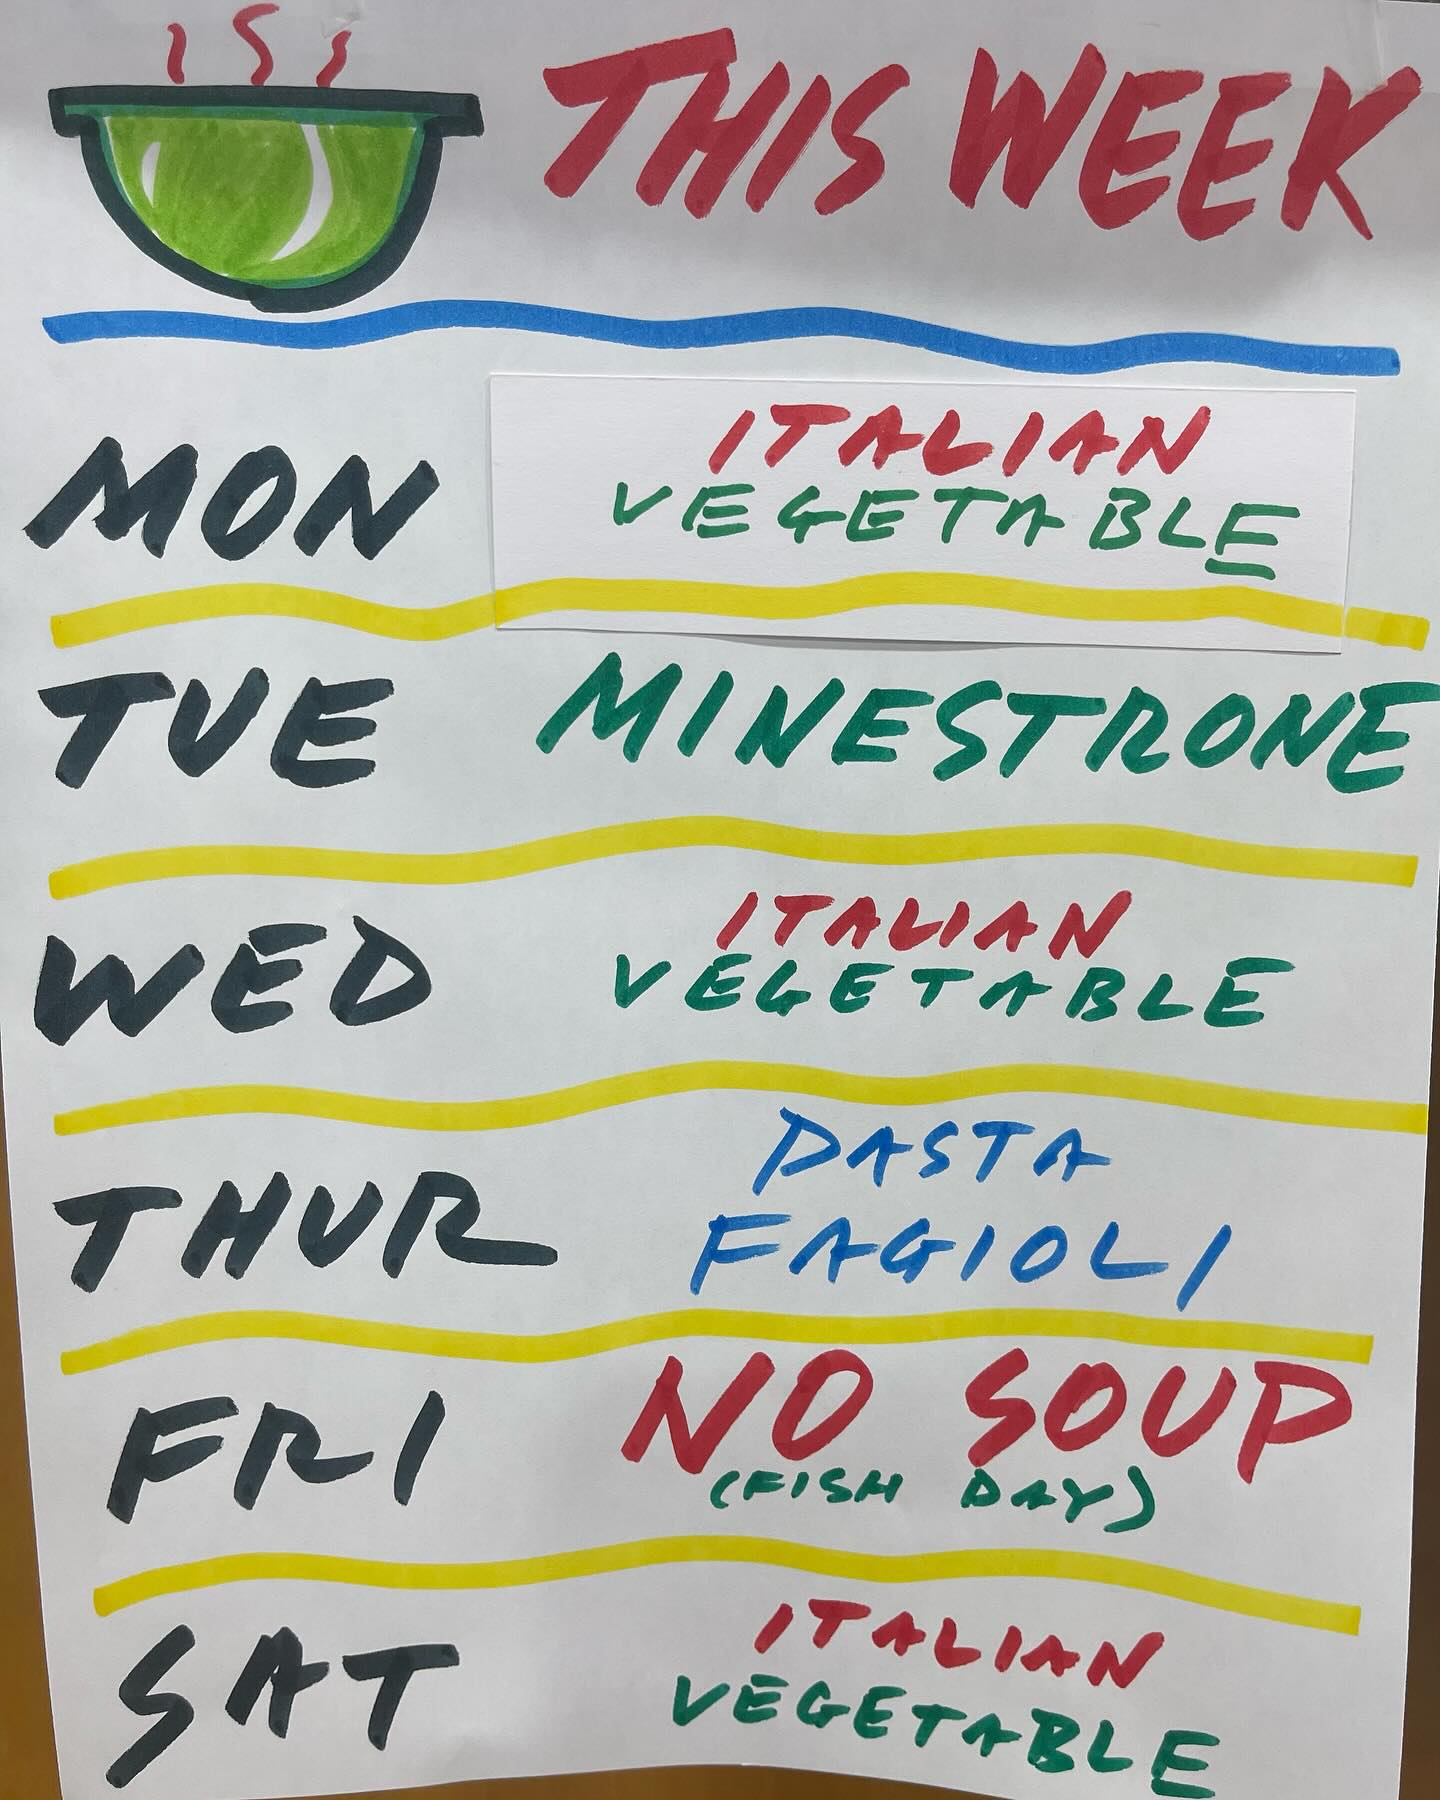 THIS WEEK
MON
ITALIAN
VEGETABLE
TUE
MINESTRONE
WED
ITALIAN
VEGETABLE
THUR
PASTA
FAGIOLI
FRI
NO SOUP
(FISH DAY)
SAT
ITALIAN
VEGETABLE